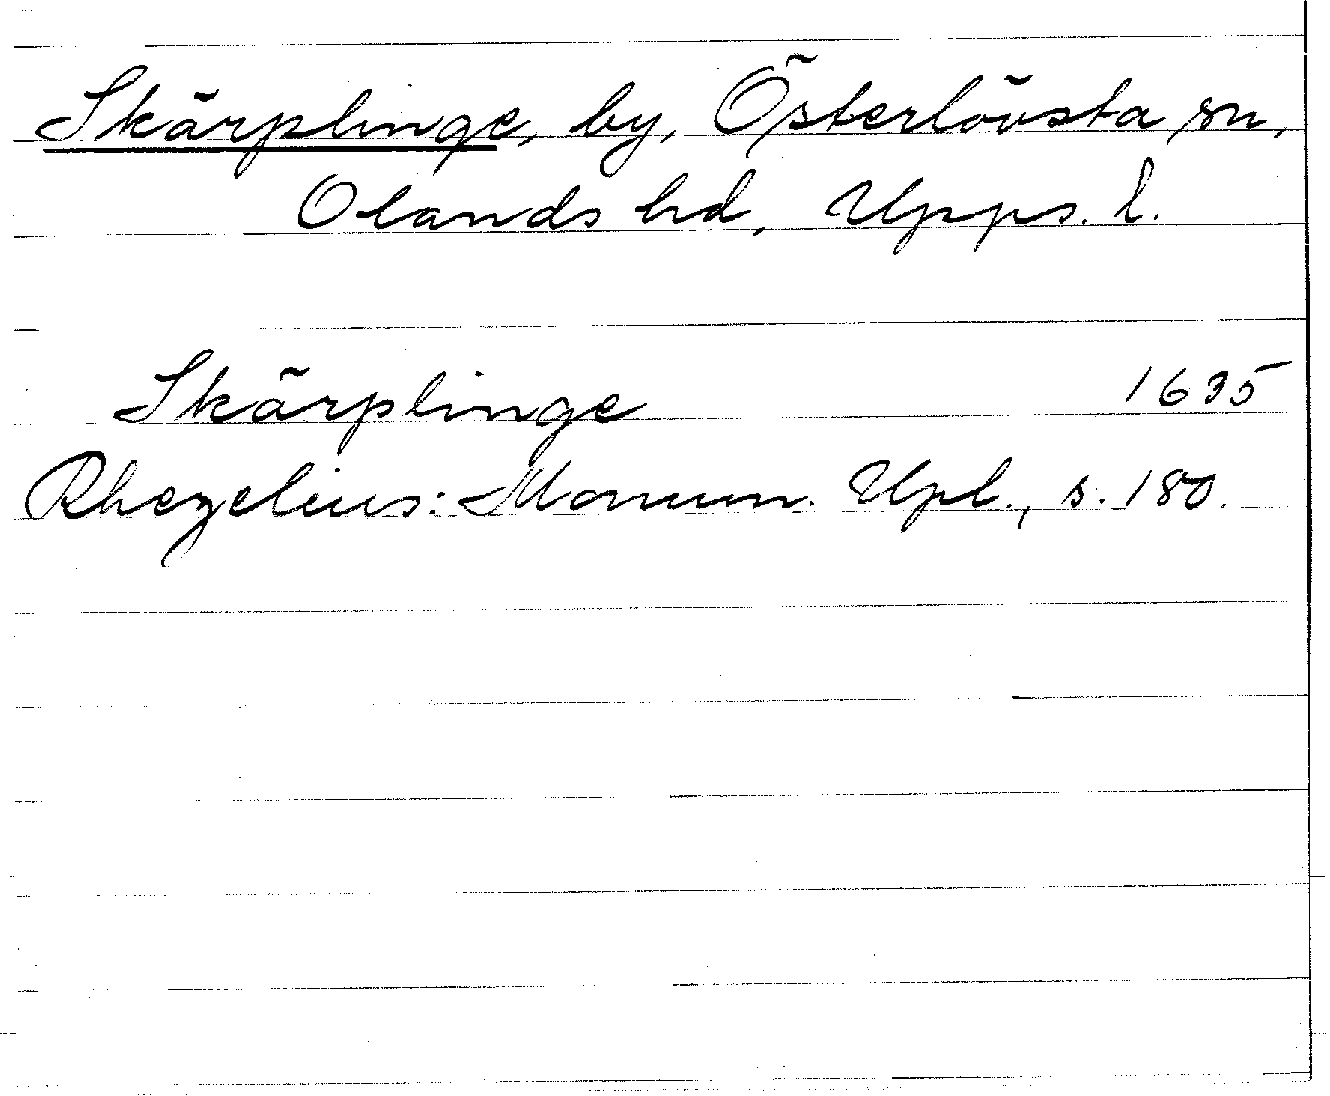 Skärplinge, by, Österlövsta sn,
Olands hd, Upps. l.
Skärplinge 1635
Rhezelius: Monum. Upl., s. 180.